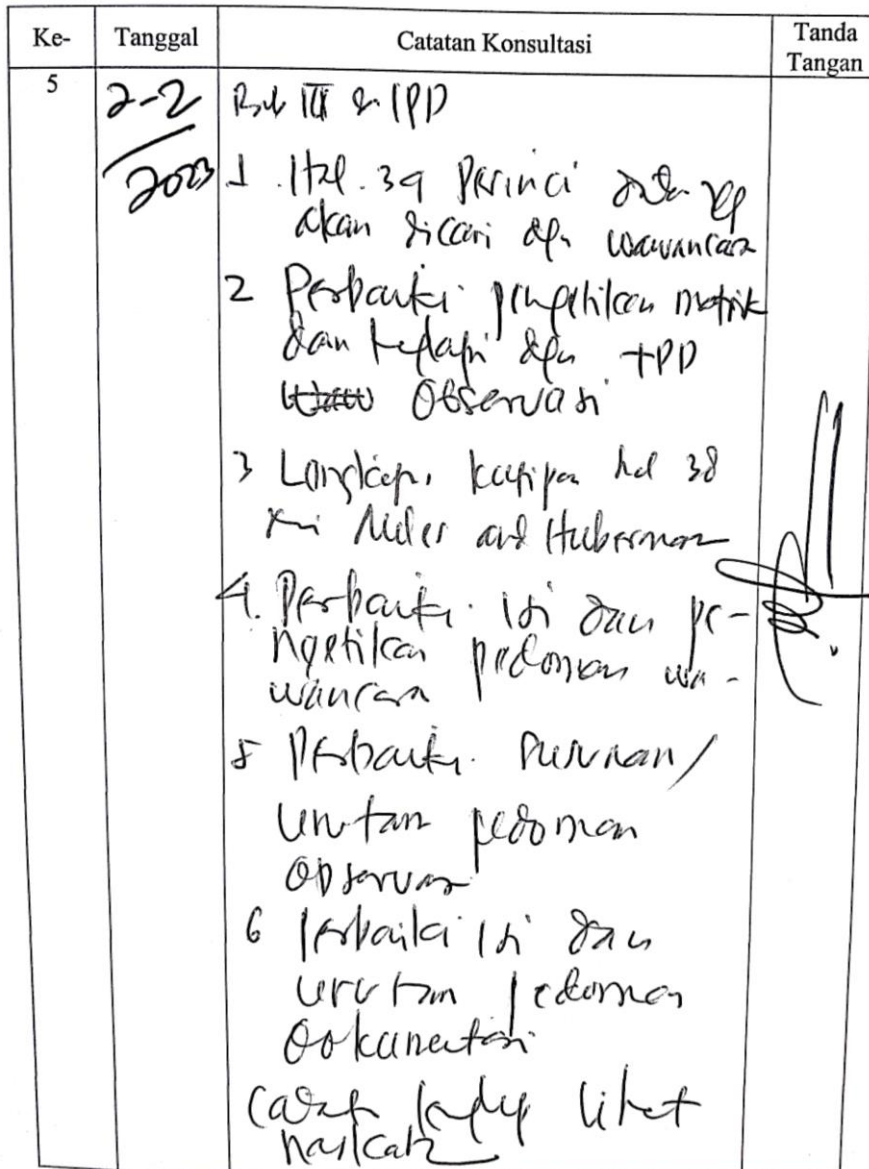 Ke-
Tanggal
Catatan Konsultasi
Tanda
Tangan
5
2-2
2023
Bab III & IPD
1. Hal. 39 Perinci data yg
akan dicari dgn wawancara
2 Perbaiki pengetikan matrik
dan lengkapi dgn TPD
Observasi
3 Lengkapi kutipan hal 38
Miles and Huberman
4. Perbaiki isi dan pe-
ngetikan pedoman wa-
wancara
5 Perbaiki susunan/
urutan pedoman
observasi
6 Perbaiki isi dan
urutan pedoman
dokumentasi
Catatan lengkap lihat
naskah